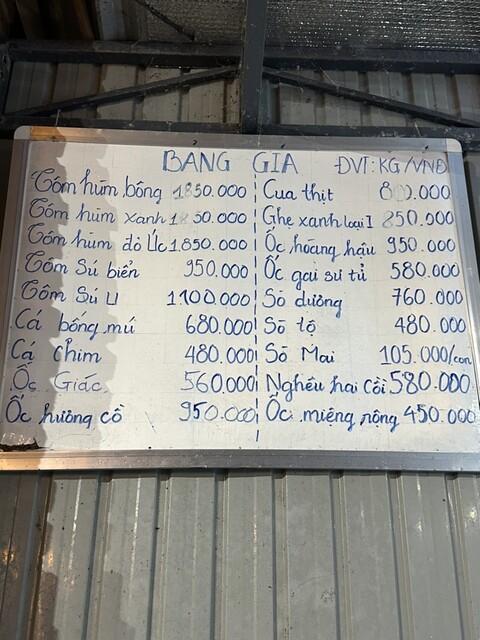 BANG GIA ĐVT: KG/VNĐ
Tôm hùm bông 1850.000
Tôm hùm xanh
Tôm hùm đỏ Úc 1.850.000
Tôm Sú biển 950.000
Tôm Sú U 1100.000
Cá bống mú 680.000
Cá Chim 480.000
Ốc Giác 560.000
Ốc hương cồ 950.000
Cua thịt
Ghẹ xanh loại I 850.000
Ốc hoàng hậu 950.000
Ốc gai sư tử 580.000
Sò dương 760.000
Sò tộ 480.000
Sò Mai 105.000/con
Nghêu hai cồi 580.000
Ốc miệng rộng 450.000